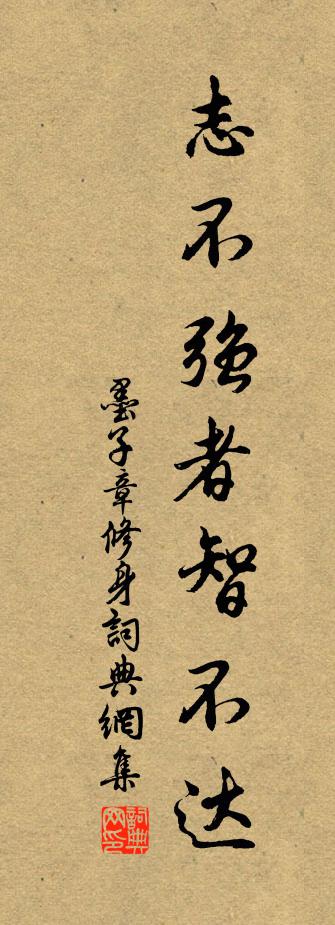 志不强者智不达
墨子章修身詞典網集
詞典網印